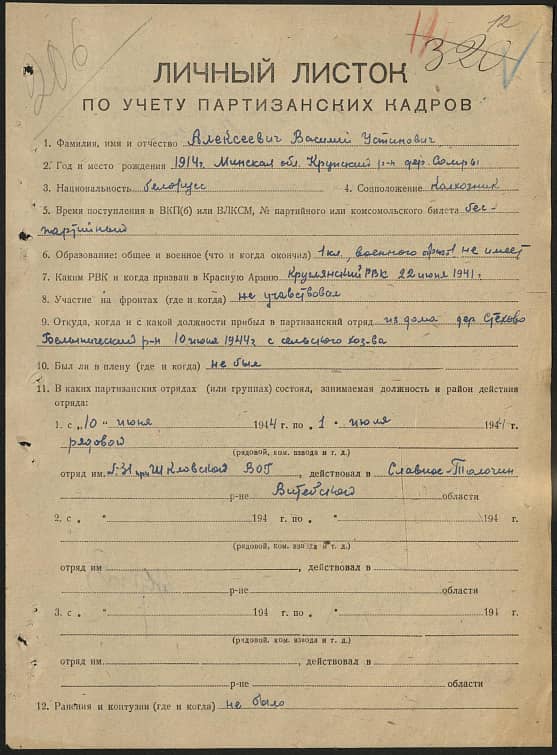 206
12
320
ЛИЧНЫЙ ЛИСТОК
ПО УЧЕТУ ПАРТИЗАНСКИХ КАДРОВ
1. Фамилия, имя и отчество Алексеевич Василий Устинович
2. Год и место рождения 1914г. Минская обл. Крупский р-н дер. Сомры
3. Национальность белорусс 4. Соцположение Колхозник
5. Время поступления в ВКП(б) или ВЛКСМ, № партийного или комсомольского билета бес-
партийный
6. Образование: общее и военное (что и когда окончил) 1 кл, военного не имеет
7. Каким РВК и когда призван в Красную Армию Круглянский РВК 22 июня 1941 г.
8. Участие на фронтах (где и когда) не учавствовал
9. Откуда, когда и с какой должности прибыл в партизанский отряд из дома дер. Стехово
Белыничский р-н 10 июня 1944 г с сельского хоз-ва
10. Был ли в плену (где и когда) не был
11. В каких партизанских отрядах (или группах) состоял, занимаемая должность и район действия
отряда:
1. с „10" июня 1944 г. по „1" июля 1944 г.
рядовой
(рядовой, ком. взвода и т. д.)
отряд им. при Шкловской ВОГ, действовал в Славное-Толочин
р-не Витебской области
2. с „ " 194 г. по „ " 194 г.
(рядовой, ком. взвода и т. д.)
отряд им. , действовал в
р-не области
3. с „ " 194 г. по „ " 194 г.
(рядовой, ком. взвода и т. д.)
отряд им. , действовал в
р-не области
12. Ранения и контузии (где и когда) не было